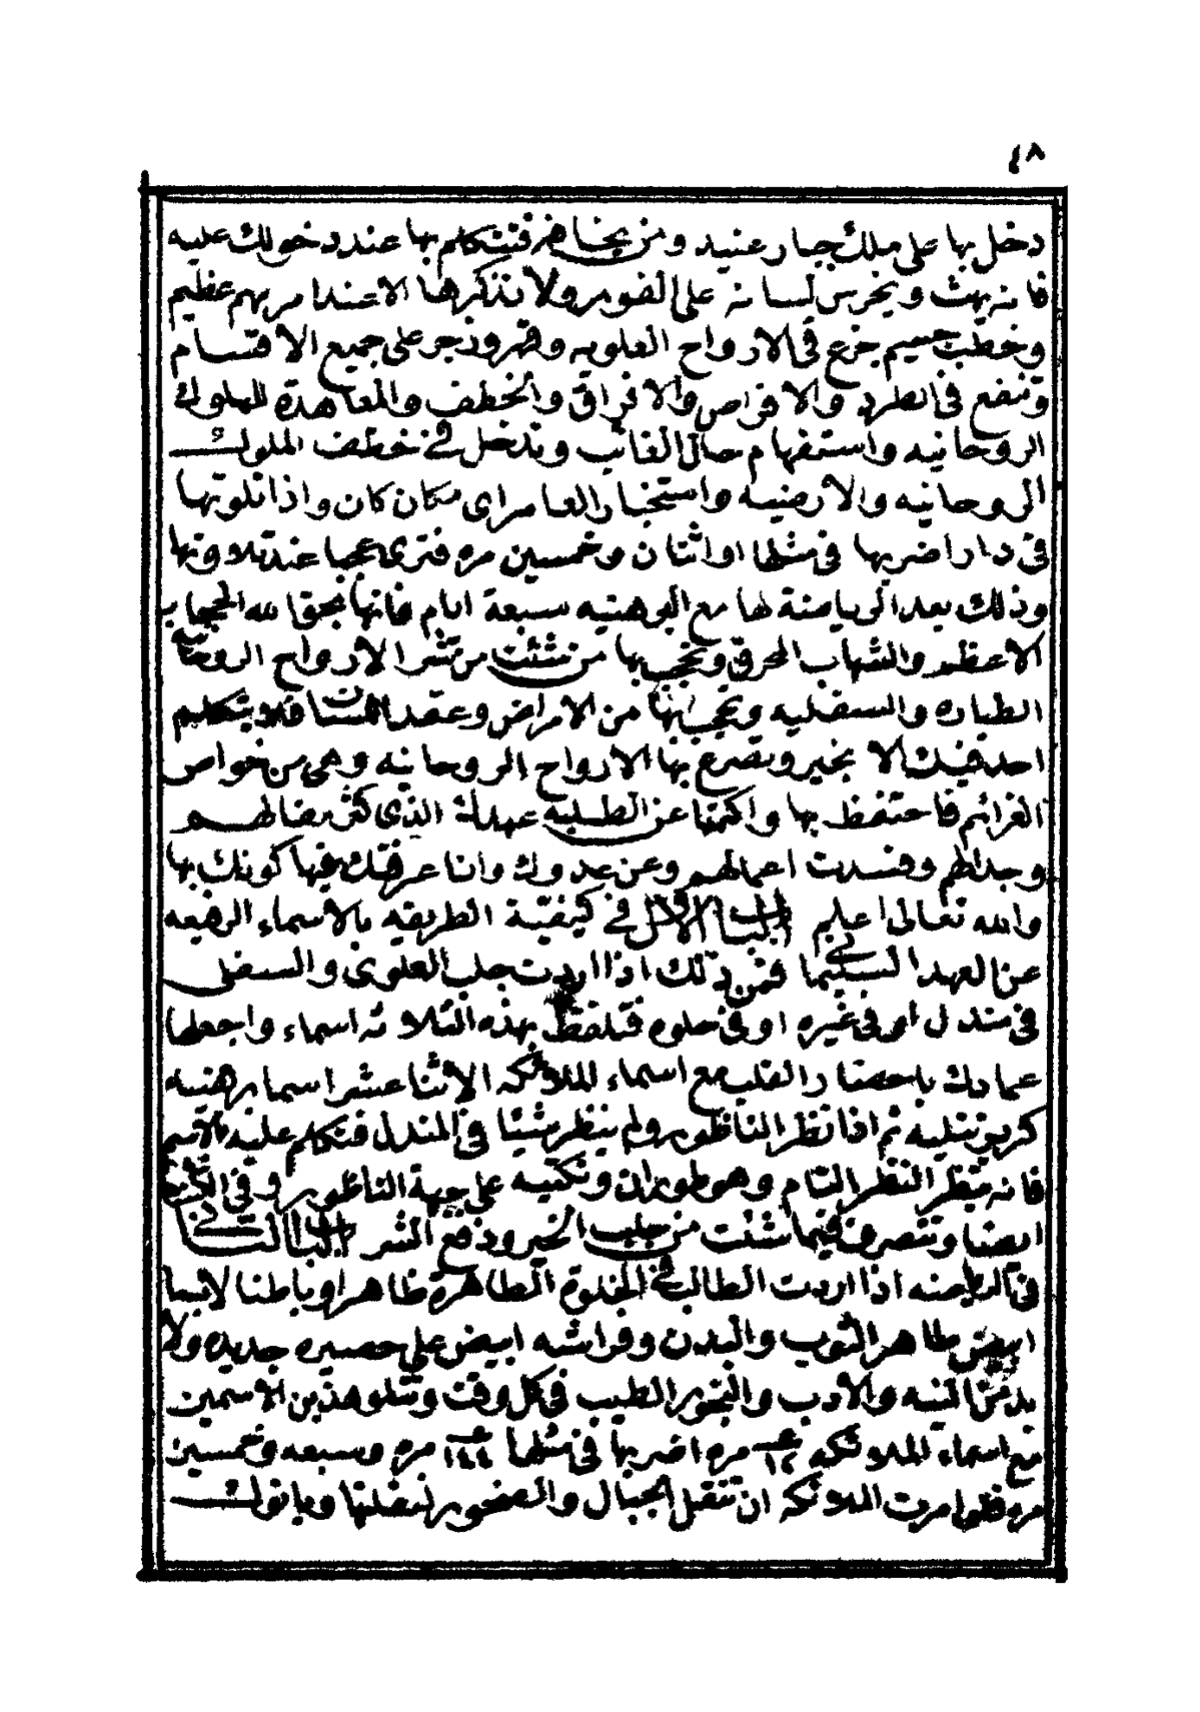 ٤٨
دخل بها على ملك جبار عنيد ومن يخاهم فتتكلم بها عند دخولك عليه
فانه يبهت ويخرس لسانه على الفور ولا تذكرها الا عند امر بهم عظيم
وخطب جسيم جزع في الارواح العلويه وقهر وزجر على جميع الاقسام
وتنفع في الطرد والاقراص والافراق والخطف والمعاهدة للملوك
الروحانيه واستفهام حال الغائب وتدخل في خطف الملوك
الروحانيه والارضيه واستخبار العامر اى مكان كان واذا تلوتها
في دار اضربها في مثلها او اثنان وخمسين مره فترى عجبا عند تلاوتها
وذلك بعد الرياضة لها مع البرهتيه سبعة ايام فانها بحق الله الحجاب
الاعظم والشهاب المحرق وتحجب بها من شئت من شر الارواح الروحانية
الطياره والسفليه وتحجب بها من الامراض وعقد اللسان فلا يتكلم
احد فيك الا بخير وتصرع بها الارواح الروحانيه وهى من خواص
العزائم فاحتفظ بها واكتمها عن الطلبه جهلة الذى كثر ضالهم
وجدالهم وفسدت اعمالهم وعن عدوك وانا عرفتك فيها كونك بها
والله تعالى اعلم الباب الاول في كيفية الطريقه بالاسماء الرفيعه
عن العهد السليماني فمن ذلك اذا اردت جلب العلوى والسفلى
في مندل او في غيره او في خلوه فتلفظ بهذه الثلاثه اسماء واجعلها
عمادك باحضار القلب مع اسماء الملائكه الاثنا عشر اسما برهتيه
كرير تتليه ثم اذا نظر الناظور ولم ينظر شيئا في المندل فتكلم عليه بالاسم
فانه ينظر النظر التام وهو طوران وتكتبه على جبهة الناظور وفي
ايضا وتتصرف فيما شئت من جلب الخير ودفع الشر الباب الثاني
في الرياضه اذا اردت الطالب في الخلوة الطاهرة ظاهرا وباطنا لابسا
ابيض طاهر الثوب والبدن وفراشه ابيض على حصيره جديده ولا
بد من النيه والادب والبخور الطيب في كل وقت وتتلو هذين الاسمين
مع اسماء الملائكه ١٢ مره اضربها في مثلها ١٤٤ مره وسبعه وخمسين
مره فلو امرت الملائكه ان تنقل الجبال والصخور لنقلتها وياتوك